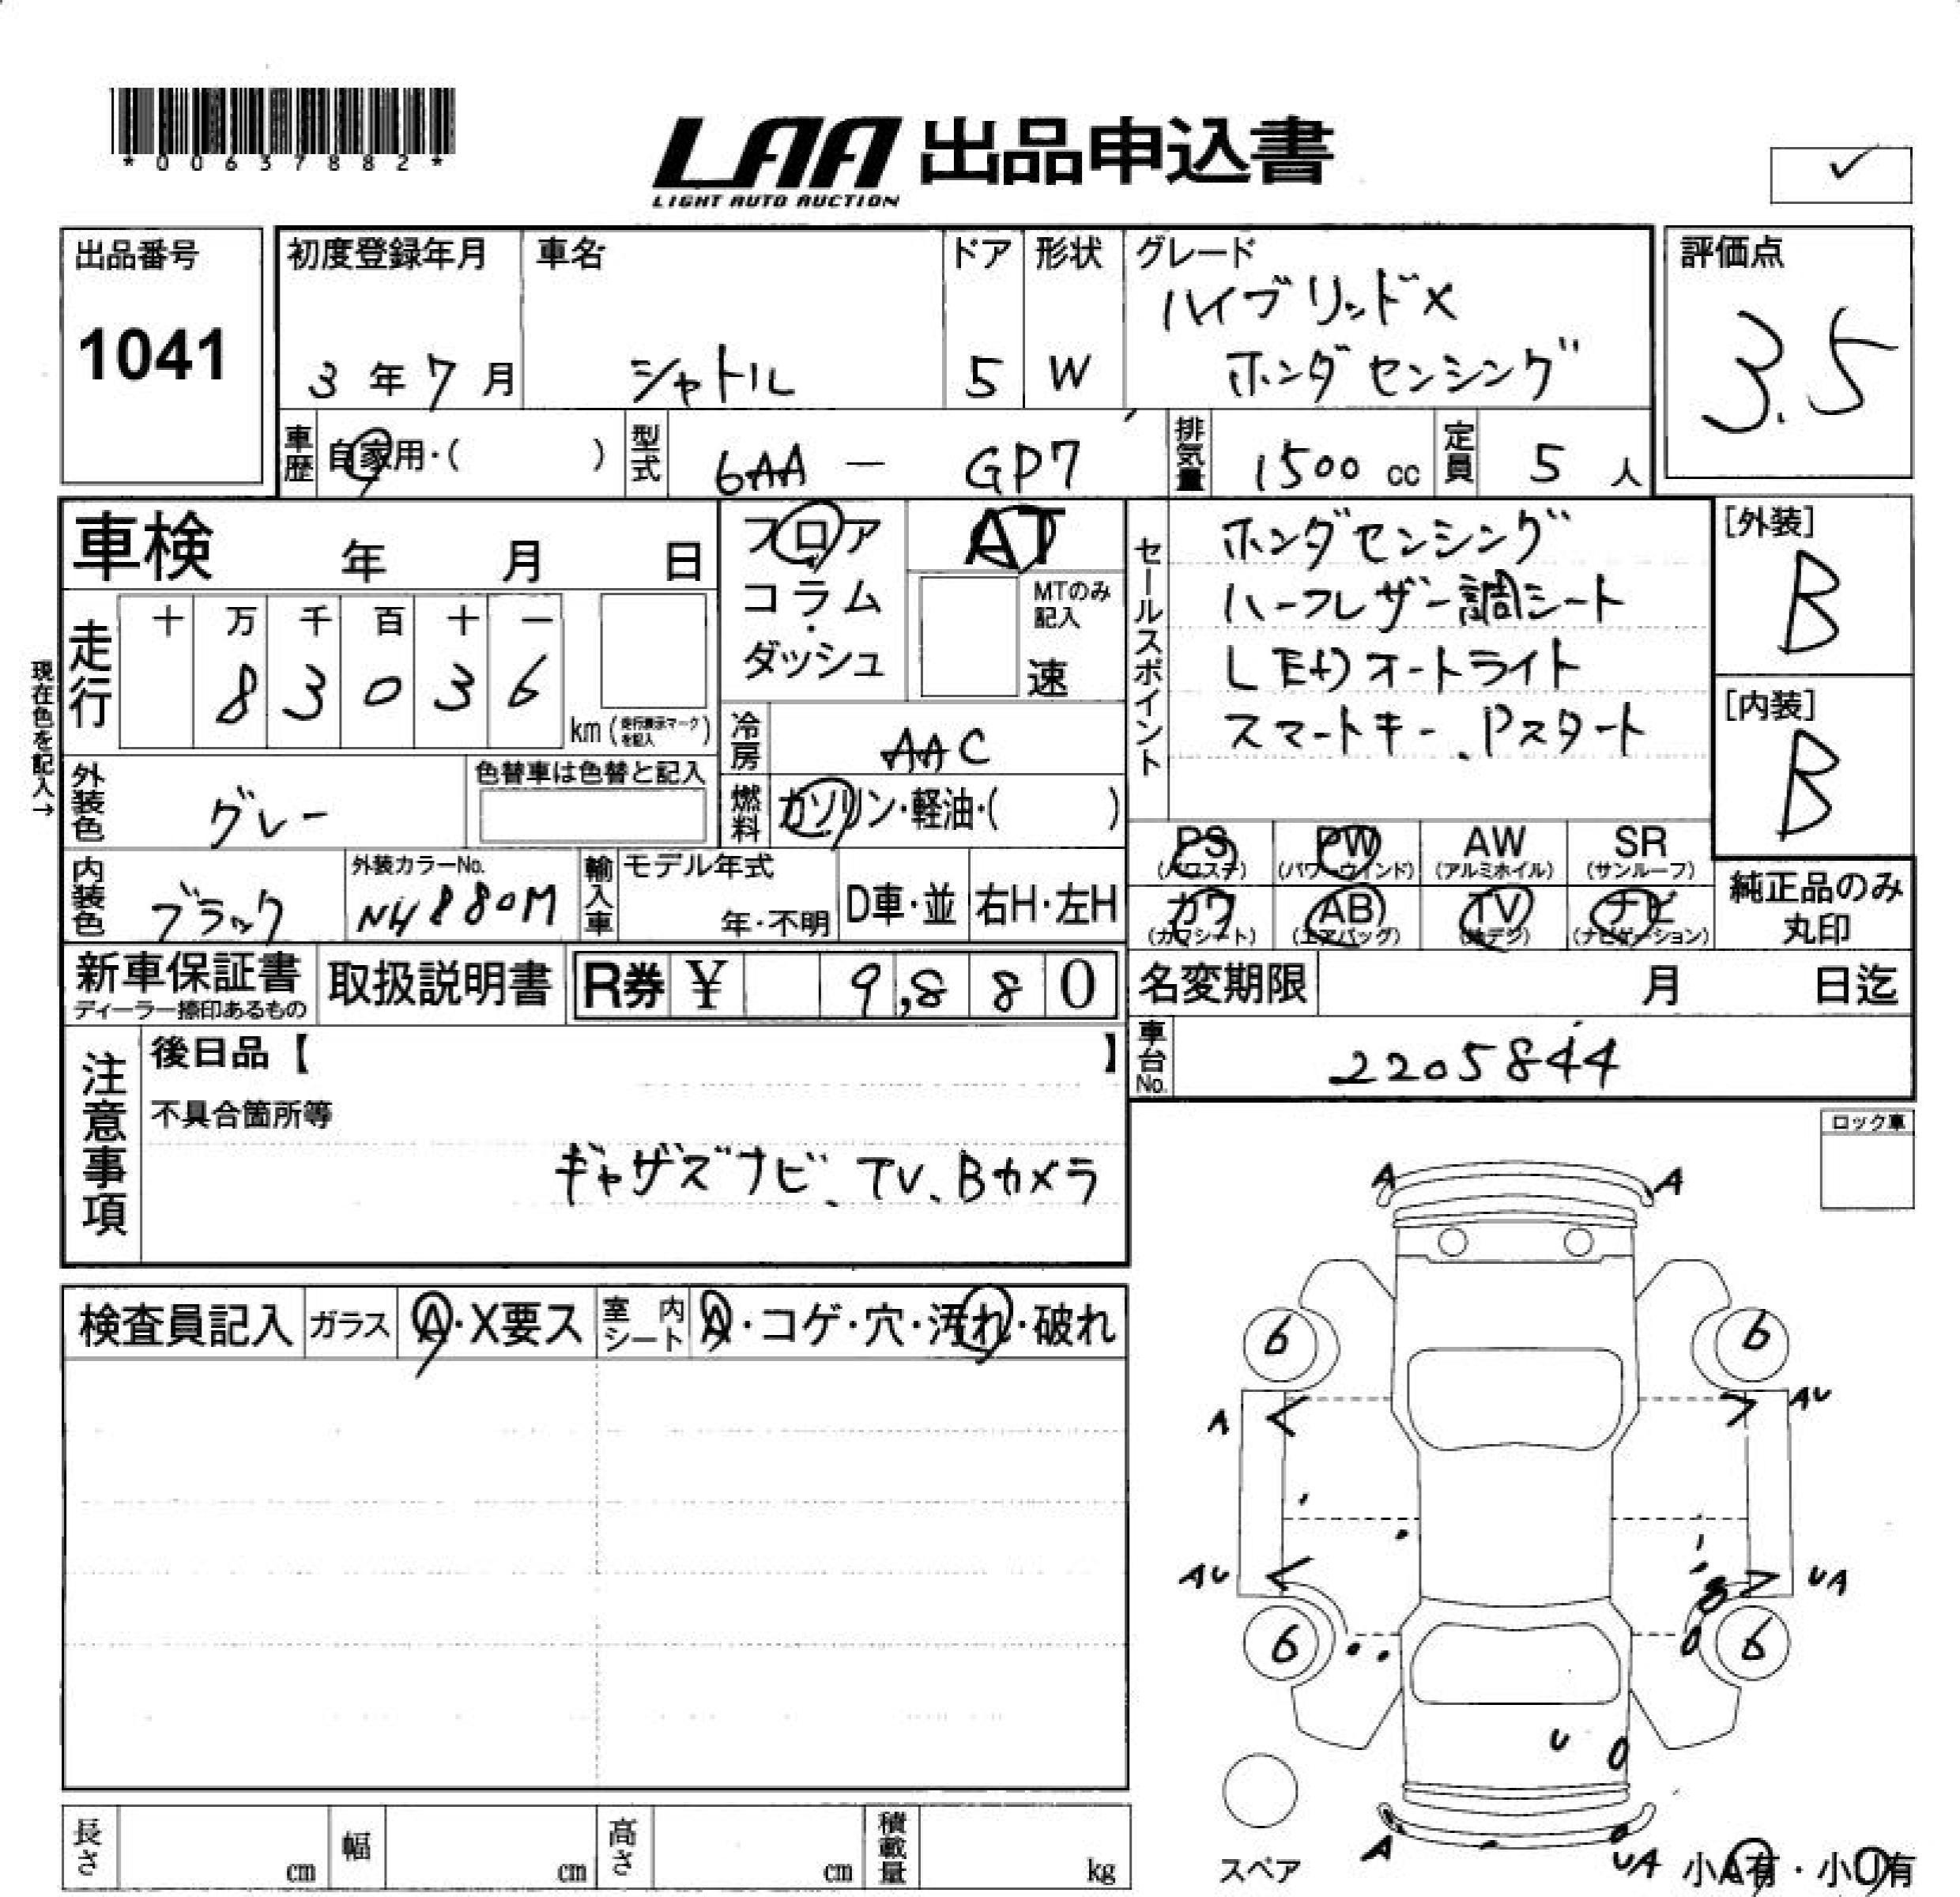 *00637882*
LAA 出品申込書
LIGHT AUTO AUCTION
✓
出品番号
1041
初度登録年月
3年7月
車名
シャトル
ドア
5
形状
W
グレード
ハイブリッドX
ホンダセンシング
評価点
3.5
車歴
自家用・( )
型式
6AA － GP7
排気量
1500 cc
定員
5人
車検 年 月 日
フロア・コラム・ダッシュ
AT
MTのみ記入
速
セールスポイント
ホンダセンシング
ハーフレザー調シート
LEDオートライト
スマートキー、Pスタート
[外装]
B
[内装]
B
現在色を記入→
走行
十 万 千 百 十 一
8 3 0 3 6
km(走行表示マークを記入)
冷房
AAC
燃料
ガソリン・軽油・( )
外装色
グレー
色替車は色替と記入
PS
(パワステ)
PW
(パワーウインド)
AW
(アルミホイル)
SR
(サンルーフ)
カワ
(カワシート)
AB
(エアバッグ)
TV
(地デジ)
ナビ
(ナビゲーション)
純正品のみ
丸印
内装色
ブラック
外装カラーNo.
NH880M
輸入車
モデル年式
年・不明
D車・並
右H・左H
新車保証書
ディーラー捺印あるもの
取扱説明書
R券 ¥ 9,880
名変期限 月 日迄
車台No.
2205844
注意事項
後日品【 】
不具合箇所等
ギャザズナビ、TV、Bカメラ
ロック車
検査員記入
ガラス
A・X要ス
室内シート
A・コゲ・穴・汚れ・破れ
A A
6 6
A AU
AU UA
6 6
U
A UA
スペア
小A有・小U有
長さ cm
幅 cm
高さ cm
積載量 kg